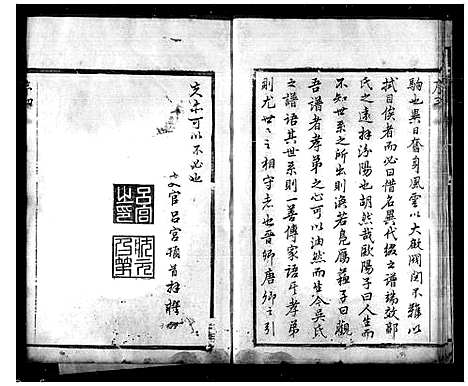 駒也異日奮身風雲以大啟閥閱不難以
拭目俟者而必曰借名異代綴之譜端效鄙
氏之遠拜汾陽也胡然哉歐陽子曰人生而
不知世系之所出則漠若凫雁蘇子曰觀
吾譜者孝弟之心可以油然而生今吳氏
之譜語其世系則一善傳家語乎孝弟
則尤世〻相守志也晉卿唐卿之引
文亦可以不必也
官呂宮頓首拜
呂宮
之印
狀元